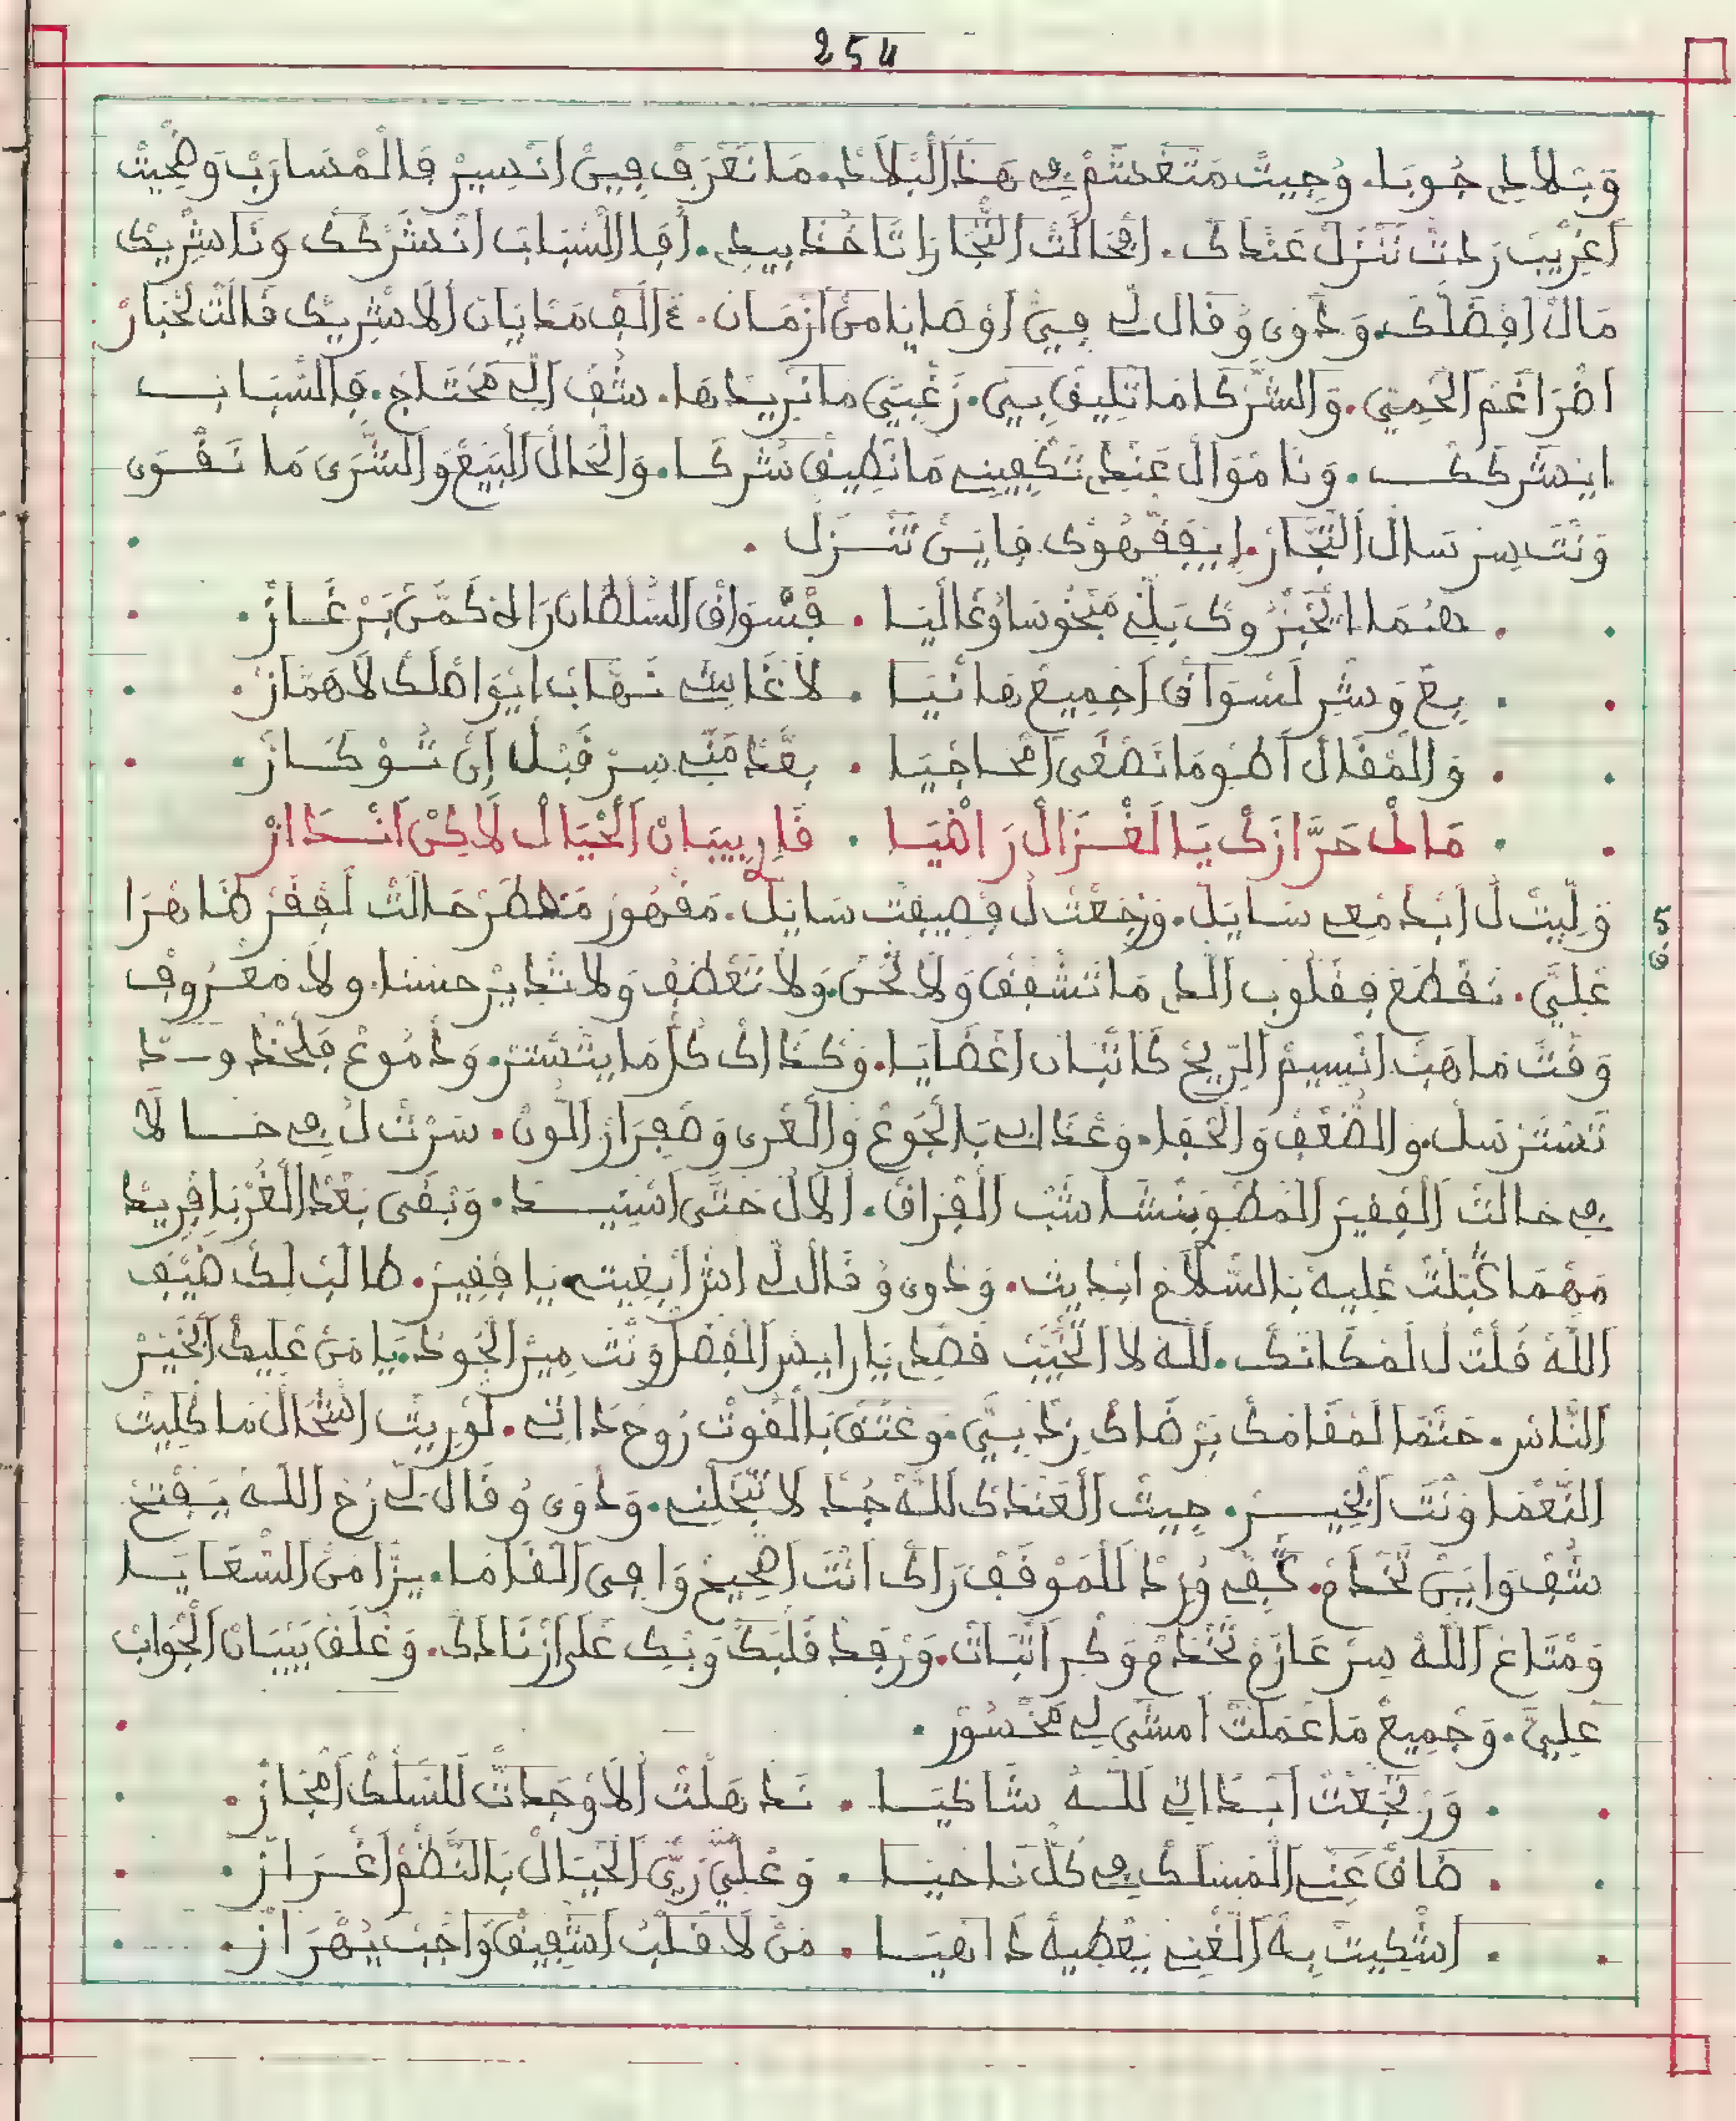 254
وَبْلَادِي جُوبَا. وُجِيتْ مَتْغَشَّمْ فِي هَذَا الْبْلَادْ. مَا نَعْرَفْ فِينْ انْسِيرْ فَالْمْسَارَبْ وَضْحِيتْ
اَغْرِيبْ رَدْتْ نَنْزَلْ عَنْدَكْ. افْحَالَتْ التّْجَارَا تَاخُذْ بِيدِي. اُفَا السْبَابْ انْشَرْكَكْ وَنَا شْرِيكْ
مَالْ افْضَلَكْ. وَدْوَى وْقَالْ لِي فِينْ اُوْصَايَا مَنْ ازْمَانْ. عْ الَفْ مَدَايَانْ اَلَا شْرِيكْ قَالَتْ لَخْبَارْ
اضْرَاغَمْ الْحَمْتِي. وَالشَّرْكَا مَا تْلِيقْ بِيَّ. رَغْبْتِي مَا نْرِيدْهَا. شُفْ الِّي مَحْتَاجْ. فَالسْبَابْ
ايْشَرْكَكْ. وَنَا مْوَالْ عَنْدِي تَكْفِينِي مَا نْطِيقْ شَرْكَا. وَالْحَالْ الْبَيْعْ وَالشّْرَى مَا نَقْوَى
وَنْتَ سِرْ سَالْ التّْجَّارْ. ايْفَقْهُوكْ فَايَنْ تَنْزَلْ.
هُمَا ايْخَبْرُوكْ بَلِّي مَبْخُوسَا وُغَالْيَا. فَسْوَاقْ السُّلْطَانْ رَاهْ كَمَّنْ بَرْغَازْ.
بِعْ وَشْرِ لَسْوَاقْ اجْمِيعْ هَانْيَا. لَا غَاشِي نَهَّابْ ايْوَاصْلَكْ لَا هَمَّازْ.
وَالْمْقَالْ اطْوِ مَا نَصْغَى امْحَاجْيَا. بَعَّدْ مَنِّي سِرْ قْبَلْ انْ تَوْكَازْ.
مَالْ حَرَّازَكْ يَا لَغْزَالْ رَاضْيَا. فَارِيبْيَانْ الْحْيَالْ لَاكِنْ انْدَازْ
5
وَلِّيتْ لُ ابْدَمْعِي سَايَلْ. وَرْجَعْتْ لُ فْصِيفْتْ سَايَلْ. مَقْهُورْ مَضْطَرْ حَالَتْ لَفْقَرْ ظَاهْرَا
عْلِيَّ. تَقْطَعْ فَقْلُوبْ الِّي مَا تَشْفَقْ وَلَا تْحَنْ. وَلَا تَعْطَفْ وَلَا تْدِيرْ حَسْنَا. وَلَا مَعْرُوفْ
وَقْتْ مَا هَبْ انْسِيمْ الرِّيحْ كَاتْبَانْ اعْضَايَا. وَكْذَاكْ كُلْ مَا يَتْسْتَرْ. وَدْمُوعْ فَلْخْدُودْ
تَسْتَرْسَلْ. وَالضُّعْفْ وَالْحْفَا. وَعْذَابِي بَالْجُوعْ وَالْعْرَى وَصْفِرَارْ اللُّونْ. سَرْتْ لُ فِي حَالَا
فِي حَالَتْ الْفْقِيرْ الْمَطْوِي بَنْشَاشَبْ الْفْرَاقْ. الَالْ حَتَّى اسْنِيدْ. وَنْبْقَى بَعْدْ الْغُرْبَا فْرِيدْ
مَهْمَا كْبَلْتْ عْلِيهْ بَالسْلَامْ ابْدِيتْ. وَدْوَى وُقَالْ لِي اشْ ابْغِيتِي يَا فْقِيرْ. طَالَبْ لَكْ ضَيْفْ
اللَّهْ قُلْتْ لُ لَمْكَانَكْ. لِلَّهْ لَا اتْخَيَّبْ قَصْدِي يَا رَايَسْ الْفْضَلْ وَنْتَ مِيرْ الْجُودْ. يَا مَنْ عْلِيكْ الْخَيْرْ
النَّاسْ. حَتْمَا لَمْقَامَكْ بَرْضَاكْ رَدْ بِيَّ. وَعْتَقْ بَالْقُوتْ رُوحْ دَاتِي. لَوْرِيتْ اشْحَالْ مَا كْلِيتْ
النَّعْمَا وَنْتَ الْخِيرْ. جِيتْ الْعَنْدَكْ لِلَّهْ جُدْ لَا تْبْخَلْنِي. وَدْوَى وُقَالْ لِي رُحْ اللَّهْ يَفْتَحْ
شُفْ وَايَنْ تَخْدَمْ. كُفِّي وُرْدْ لَلْمَوْقَفْ رَاكْ انْتَ اصْحِيحْ وَافِي الْقَامَا. يَزَّا مَنْ السّْعَايَا
وَمْتَاعْ اللَّهْ سِرْ عَازَمْ تَخْدَمْ وَكْرِ اتْبَاتْ. وَرْفَدْ قَلْبَكْ وَبْكِ عْلَى ارْنَادَكْ. وَغْلَقْ بِيبَانْ الْجْوَابْ
عْلِيَّ. وَجْمِيعْ مَا عْمَلْتْ امْشَى لِي مَخْسُورْ.
وَرْجَعْتْ ابْدَاتِي لِلَّهْ شَاكْيَا. نَدْهَلْتْ اُلَا وْجَدْتْ لَلسَّلْكْ امْجَازْ.
ضَاقْ عَنِّي الْمْسَلَكْ فِي كُلْ نَاحْيَا. وَعْلِيَّ رَبِّي الْحْيَالْ بَالنَّظْمْ اغْرَازْ.
اشْكِيتْ بِهْ الْغْنِي يَعْطِيهْ دَاهْيَا. مَنْ لَا قَلْبُ اشْفِيقْ وَاجَبْ يُهْرَازْ.